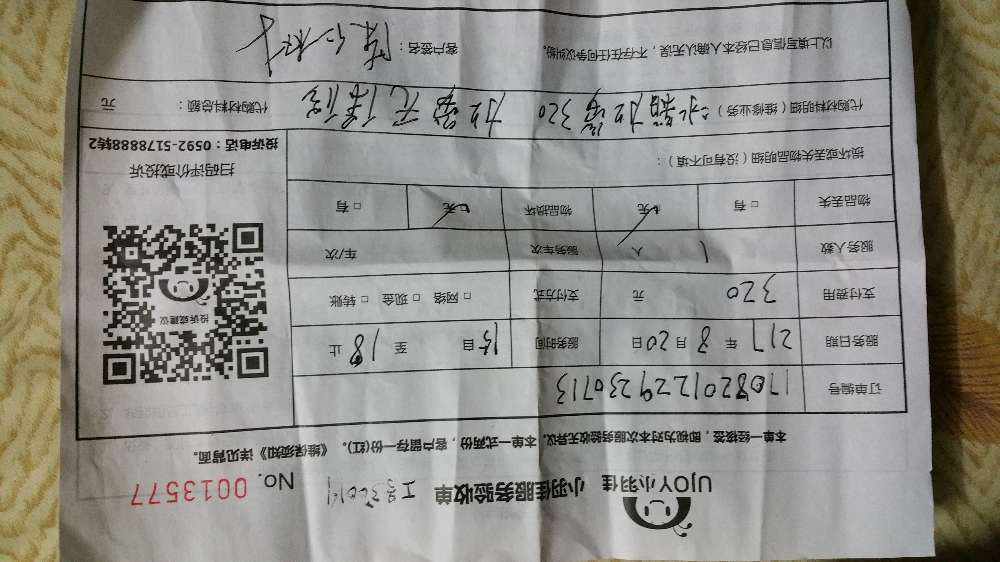 UJOY小羽佳 小羽佳服务验收单 工号 No. 0013577
本单一经核签，即视为对本次服务验收无异议。本单一式两份，客户留存一份(红)。《维保须知》详见背面。
订单编号 170820122923 0713
服务日期 217年8月20日 服务时间 15自 至 18止
支付费用 320 元 支付方式 □ 网络 □ 现金 □ 转账
服务人数 1 人 服务车次 车/次
物品丢失 □ 有 □ 无 物品损坏 □ 无 □ 有
损坏或丢失物品明细（没有可不填）：
投诉或建议
扫码评价或投诉
投诉电话：0592-5178888转2
代购材料明细（维修业务） 冰箱加雪320 加雪无保 代购材料总额： 元
以上填写信息已经本人确认无误，不存在任何争议纠纷。 客户签名：